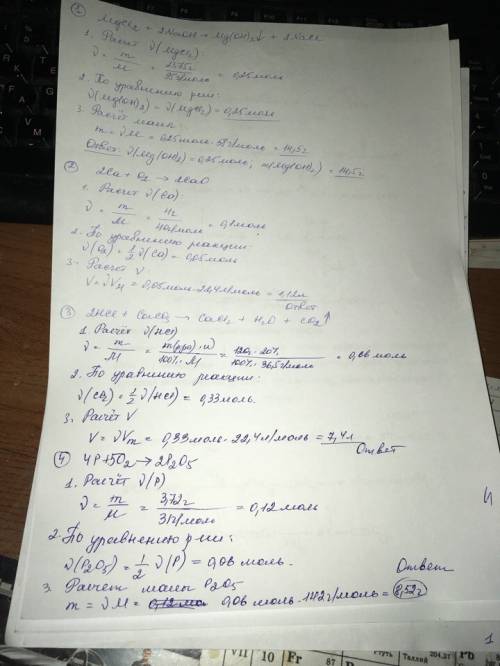 ①
MgCl₂ + 2NaOH → Mg(OH)₂↓ + 2NaCl
1. Расчёт ν(MgCl₂):
ν = m/M = 23,75г/95г/моль = 0,25моль
2. По уравнению р-ии:
ν(Mg(OH)₂) = ν(MgCl₂) = 0,25моль
3. Расчёт массы:
m = νM = 0,25моль·58г/моль = 14,5г
Ответ: ν(Mg(OH)₂) = 0,25моль; m(Mg(OH)₂) = 14,5г
②
2Ca + O₂ → 2CaO
1. Расчёт ν(Ca):
ν = m/M = 4г/40г/моль = 0,1моль
2. По уравнению реакции:
ν(O₂) = 1/2 ν(Ca) = 0,05моль
3. Расчёт V:
V = νVм = 0,05моль·22,4л/моль = 1,12л
Ответ
③ 2HCl + CaCO₃ → CaCl₂ + H₂O + CO₂↑
1. Расчёт ν(HCl)
ν = m/M = m(р-ра)·ω/100%·M = 120г·20%/100%·36,5г/моль = 0,66моль
2. По уравнению реакции:
ν(CO₂) = 1/2 ν(HCl) = 0,33моль.
3. Расчёт V
V = νVm = 0,33моль·22,4л/моль = 7,4л
Ответ
④ 4P+5O₂→2P₂O₅
1. Расчёт ν(P)
ν = m/M = 3,72г/31г/моль = 0,12моль
2. По уравнению р-ии:
ν(P₂O₅) = 1/2 ν(P) = 0,06 моль.
Ответ
3. Расчет массы P₂O₅
m = νM = 0,06 моль·142г/моль = 8,52г
4
1
VII
10
Fr
87
Ртуть
Таллий
204,37
Pb